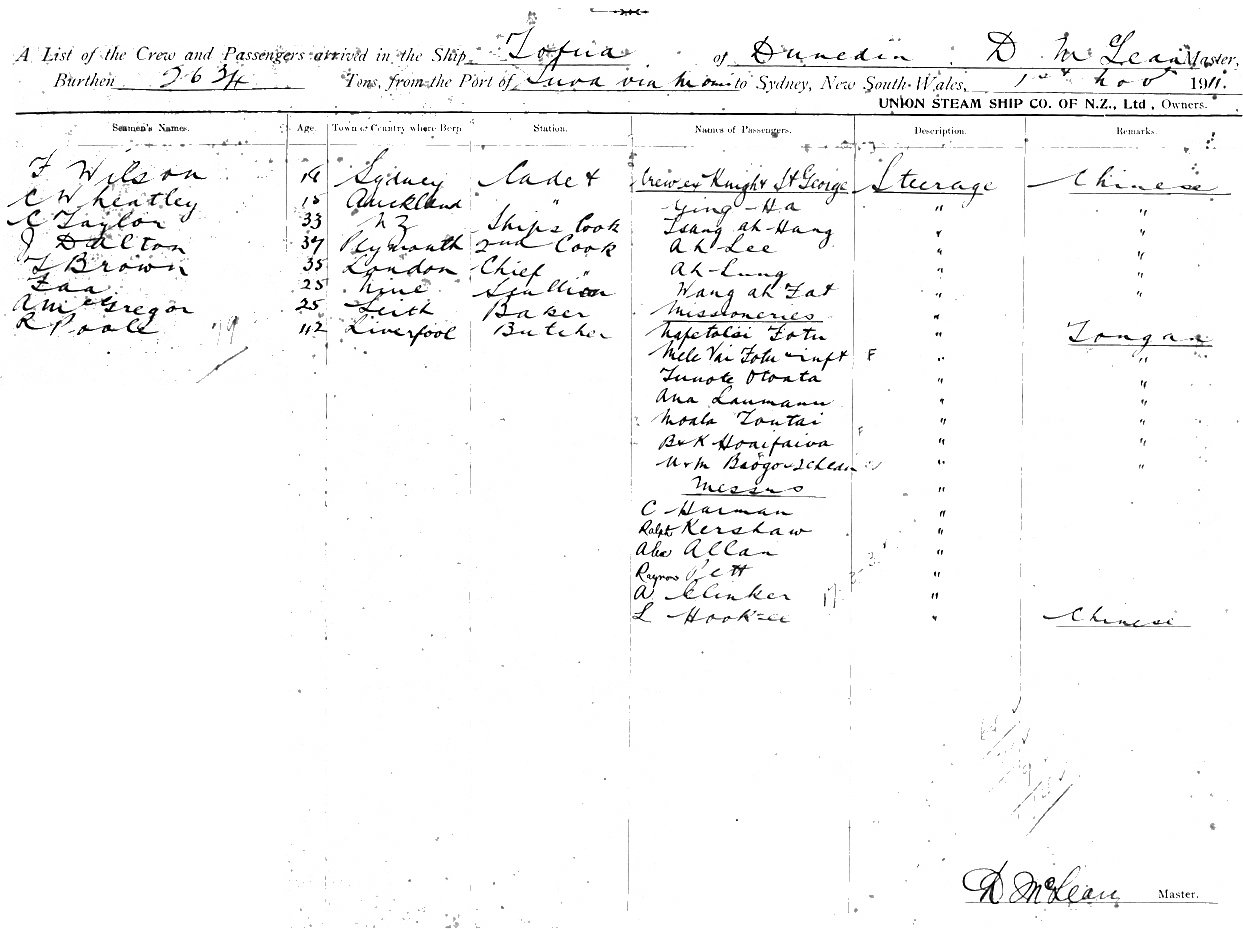 A List of the Crew and Passengers arrived in the Ship Tofua of Dunedin D McLean Master,
Burthen 2634 Tons, from the Port of Suva via to Sydney, New South Wales, 1st Nov 1911.
UNION STEAM SHIP CO. OF N.Z., Ltd, Owners.
Seamen's Names. Age. Town or Country where Born Station. Names of Passengers. Description. Remarks.
F Wilson Sydney Cadet Crew ex Knight St George Steerage Chinese
C Wheatley 15 Auckland " Ying-Ha " "
C Taylor 33 NZ Ships Cook Tsang ah-Hang " "
J Dalton 37 Plymouth 2nd Cook Ah-Lee " "
T Brown 35 London Chief " Ah-Lung " "
Faa 25 Niue Scullion Wang ah Fat " "
A McGregor 25 Leith Baker Missioneries "
R Poole 42 Liverpool Butcher Fotu " Tongan
Mele Vai Fotu & inft F " "
" "
Ana Laumanu " "
Moala Toutai " "
B & K Hoaifaiva F " "
" "
Messrs "
C Harman "
Ralph Kershaw "
Alex Allan "
Pett "
A Clinker "
L Hook-ee " Chinese
D McLean Master.